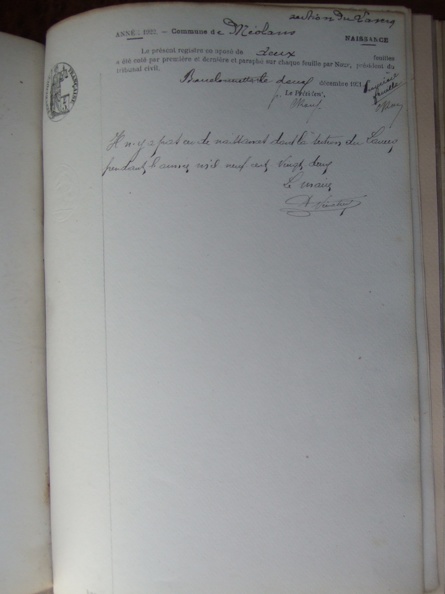 section du Laverq
ANNÉE 1922. — Commune de Méolans
NAISSANCE
Le présent registre au nombre de deux feuillets
a été coté par première et dernière et paraphé sur chaque feuille par Nous, président du
tribunal civil.
Barcelonnette le douze décembre 1921.
Le Président,
Il n'y a pas eu de naissances dans la section du Laverq
pendant l'année mil neuf cent vingt deux
Le maire